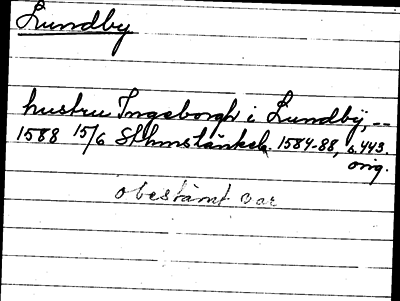 Lundby
hustru Ingeborgh i Lundbÿ, --
1588 15/6 Sthmstänkeb. 1584-88, s. 443.
orig.
obestämt var